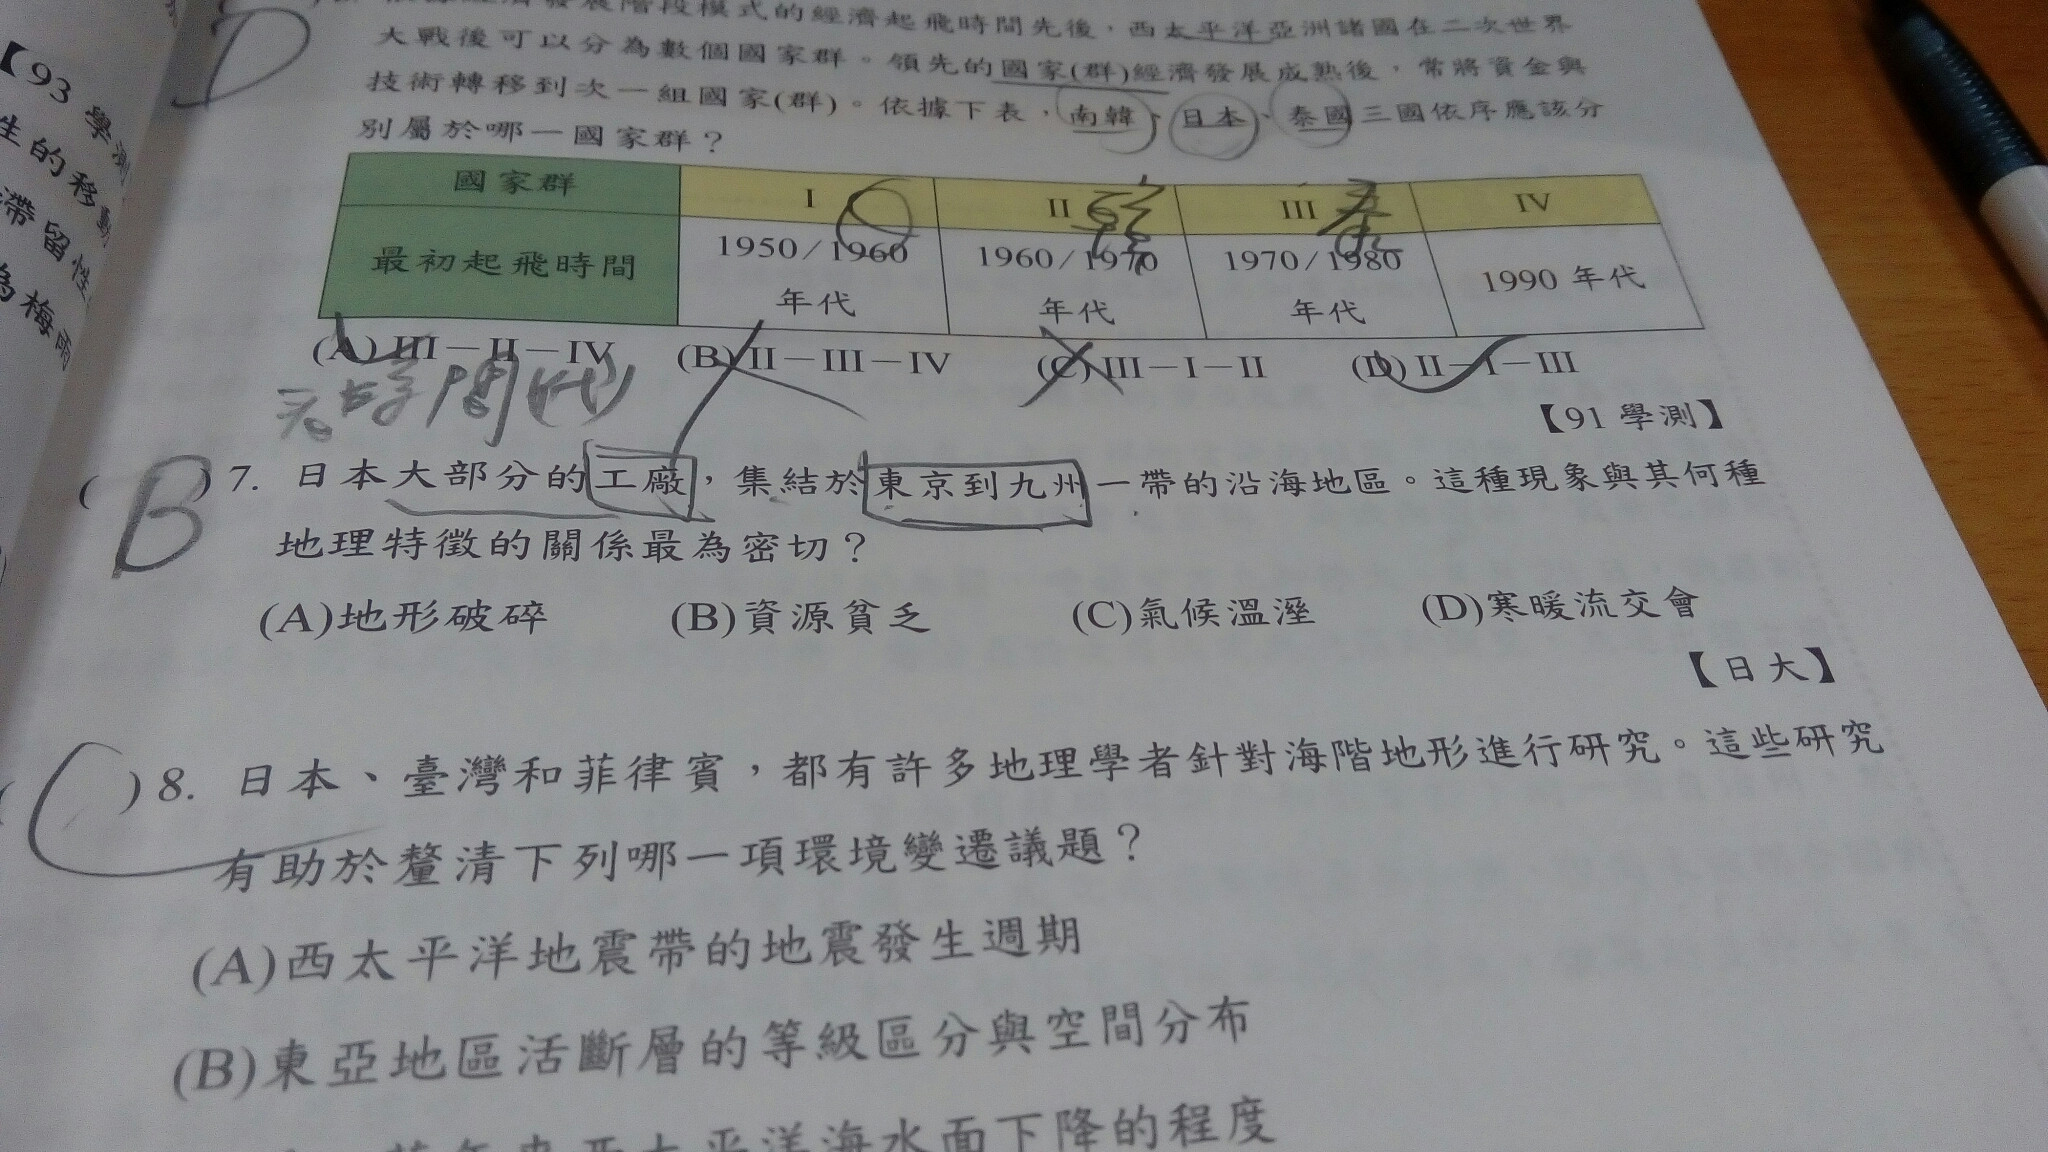 【93 學測
生的移動
滯留性
為梅雨
D
發展階段模式的經濟起飛時間先後,西太平洋亞洲諸國在二次世界
大戰後可以分為數個國家群。領先的國家(群)經濟發展成熟後,常將資金與
技術轉移到次一組國家(群)。依據下表,南韓、日本、泰國三國依序應該分
別屬於哪一國家群?
國家群 I II III IV
最初起飛時間 1950/1960年代 1960/1970年代 1970/1980年代 1990 年代
(A)III-II-IV (B)II-III-IV (C)III-I-II (D)II-I-III
【91 學測】
(B)7. 日本大部分的工廠,集結於東京到九州一帶的沿海地區。這種現象與其何種
地理特徵的關係最為密切?
(A)地形破碎 (B)資源貧乏 (C)氣候溫溼 (D)寒暖流交會
【日大】
(C)8. 日本、臺灣和菲律賓,都有許多地理學者針對海階地形進行研究。這些研究
有助於釐清下列哪一項環境變遷議題?
(A)西太平洋地震帶的地震發生週期
(B)東亞地區活斷層的等級區分與空間分布
年來西太平洋海水面下降的程度